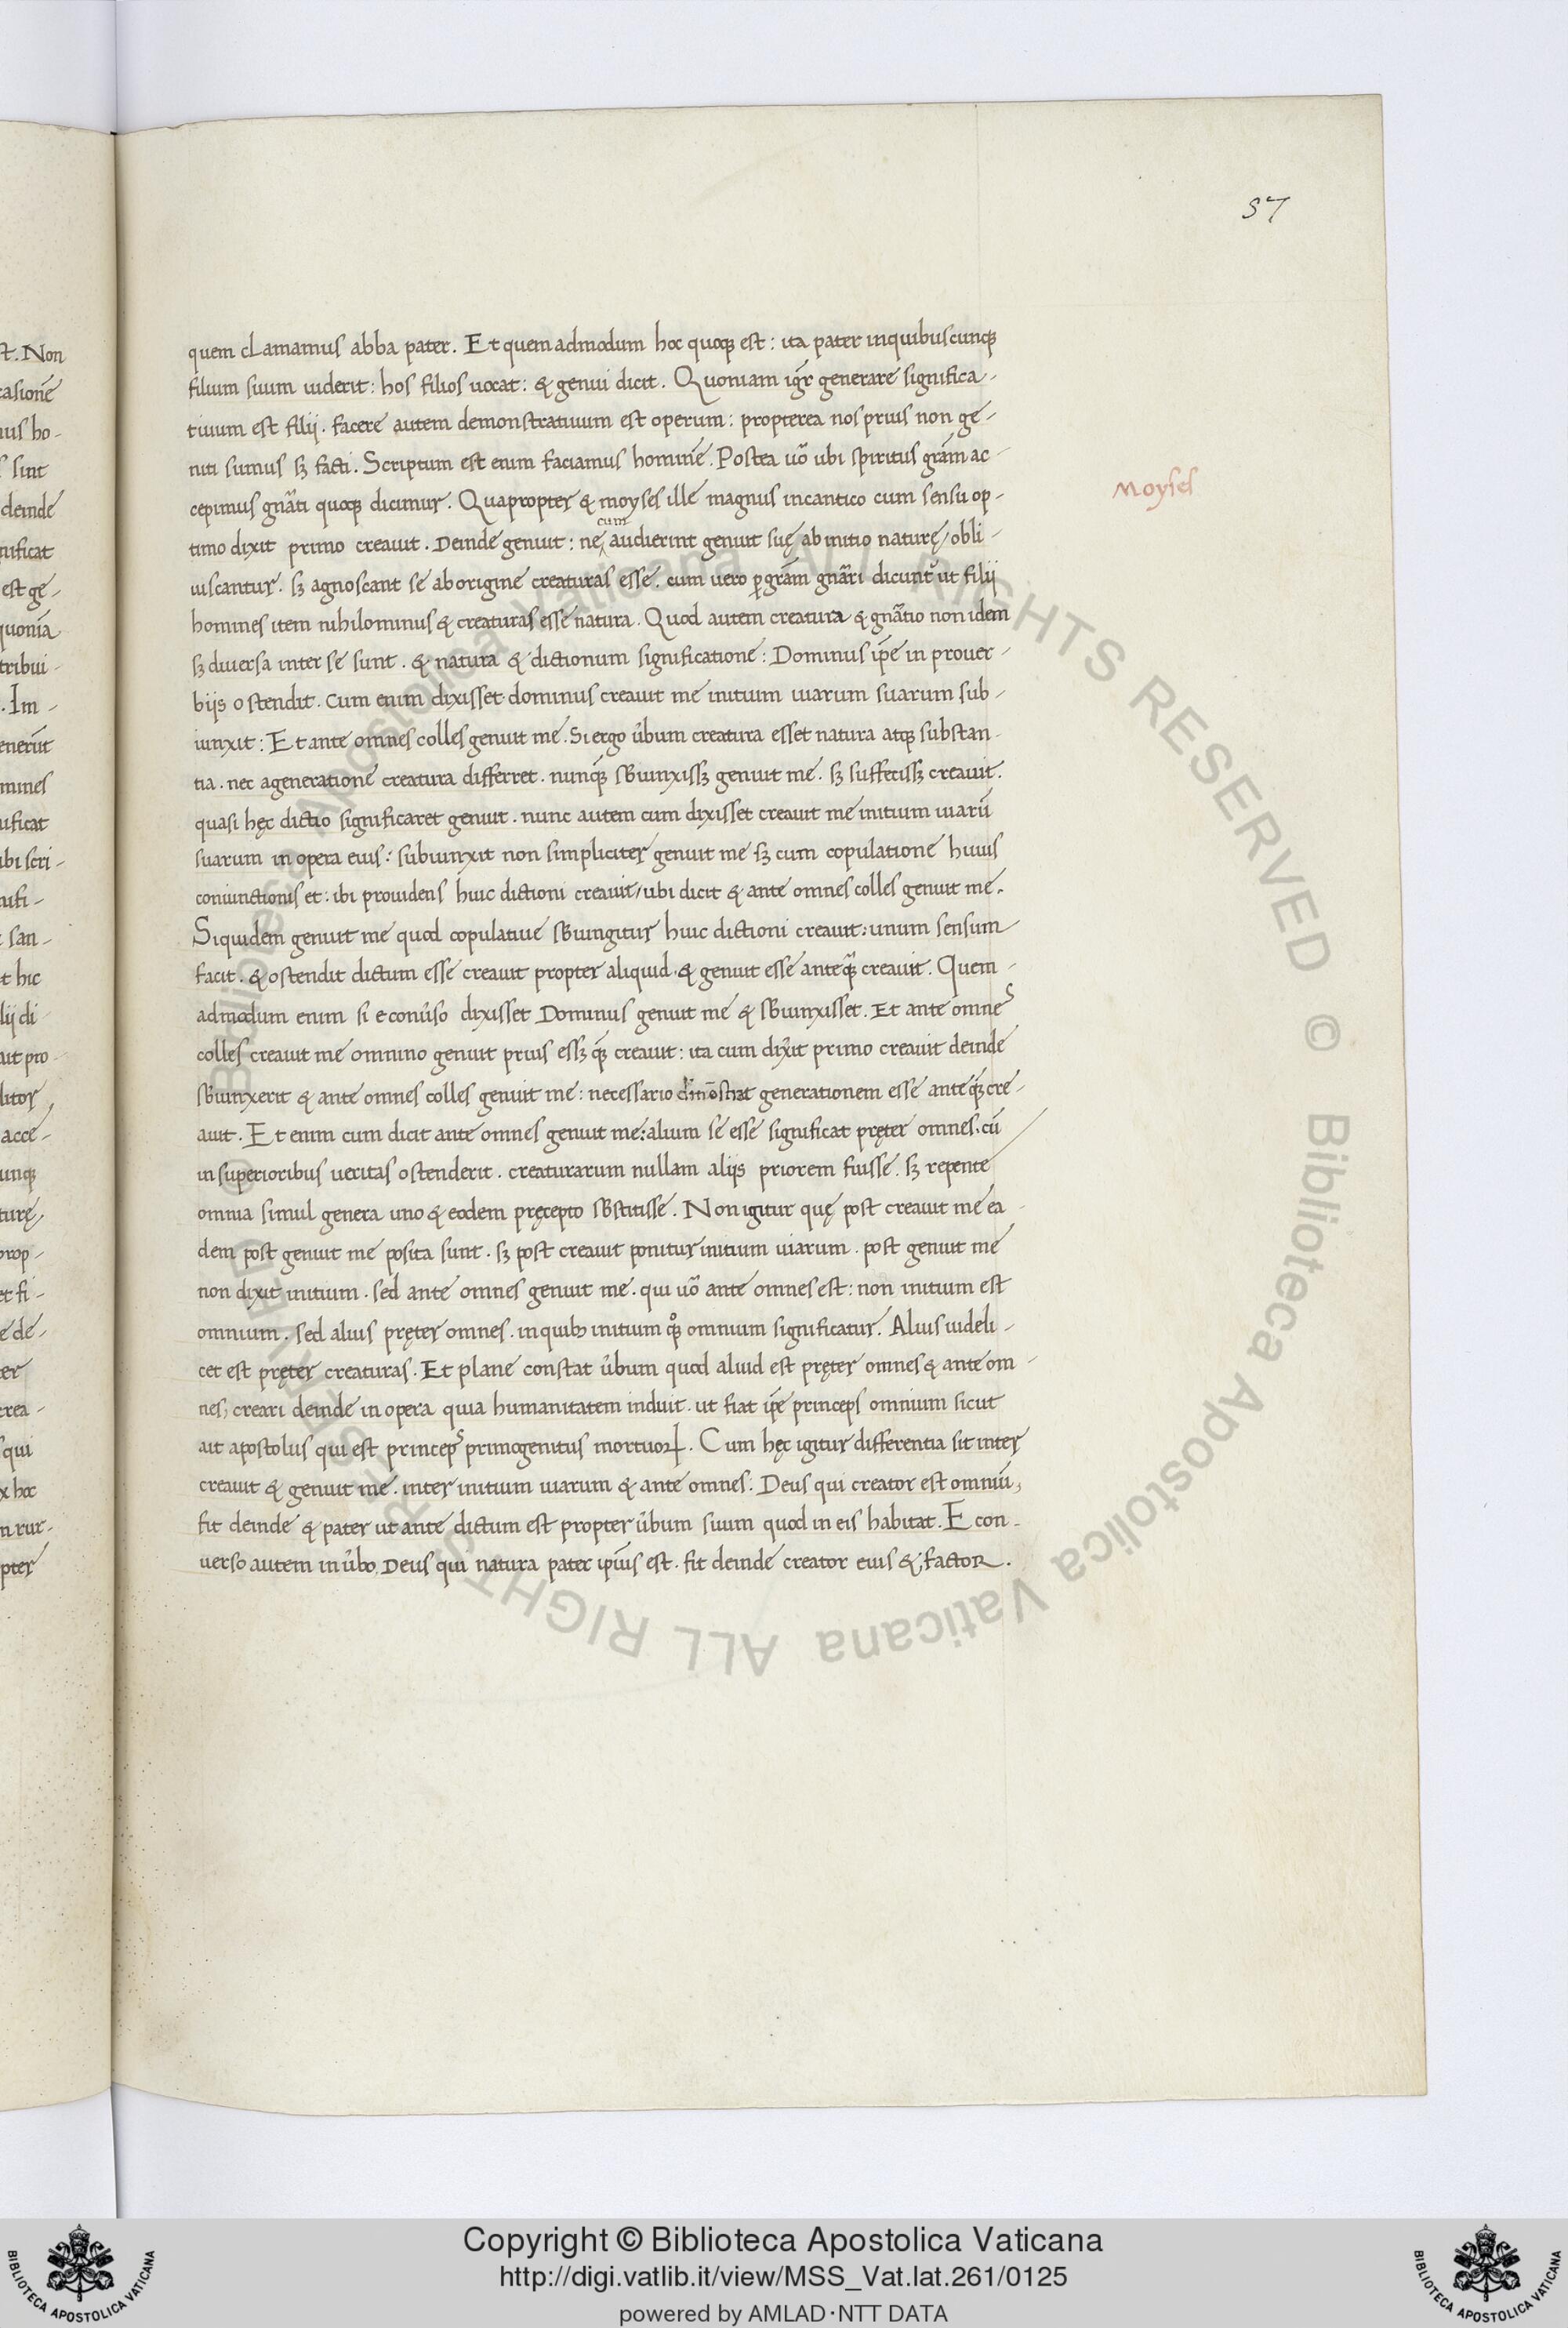 57
quem clamamus abba pater. Et quemadmodum hoc quoqꝫ est: ita pater inquibuscunqꝫ
filium suum uiderit: hos filios uocat: & genui dicit. Quoniam igr̃ generare significa-
tiuum est filij. facere autem demonstratiuum est operum: propterea nos prius non ge-
niti sumus sꝫ facti. Scriptum est enim faciamus hominẽ. Postea uõ ubi spiritus grãm ac-
cepimus gñati quoqꝫ dicimur. Quapropter & moyses ille magnus in cantico cum sensu op-
Moyses
timo dixit primo creauit. Deinde genuit: ne cum audierint genuit suę ab initio naturę/obli-
uiscantur. sꝫ agnoscant se ab origine creaturas esse. cum uero ꝑ grãm gñari dicunt᷑ ut filij
homines item nihilominus & creaturas esse natura. Quod autem creatura & gñatio non idem
sꝫ diuersa inter se sunt. & natura & dictionum significatione: Dominus ip̃e in prouer-
biis ostendit. Cum enim dixisset dominus creauit me initium uiarum suarum sub-
iunxit: Et ante omnes colles genuit me. Si ergo ũbum creatura esset natura atqꝫ substan-
tia. nec a generatione creatura differret. nunqꝫ̃ sƀiunxissꝫ genuit me. sꝫ suffecissꝫ creauit.
quasi hęc dictio significaret genuit. nunc autem cum dixisset creauit me initium uiarũ
suarum in opera eius: subiunxit non simpliciter genuit me sꝫ cum copulatione huius
coniunctionis et: ibi prouidens huic dictioni creauit/ubi dicit & ante omnes colles genuit me.
Siquidem genuit me quod copulatiue sƀiungitur huic dictioni creauit: unum sensum
facit. & ostendit dictum esse creauit propter aliquid. & genuit esse anteqꝫ̃ creauit. Quem-
admodum enim si econũso dixisset Dominus genuit me & sƀiunxisset. Et ante omnes
colles creauit me omnino genuit prius essꝫ qꝫ̃ creauit: ita cum dixit primo creauit deinde
sƀiunxerit & ante omnes colles genuit me: necessario dm̃õstrat generationem esse anteqꝫ̃ cre-
auit. Et enim cum dicit ante omnes genuit me: alium se esse significat pręter omnes. cũ
in superioribus ueritas ostenderit. creaturarum nullam aliis priorem fuisse. sꝫ repente
omnia simul genera uno & eodem pręcepto sƀstitisse. Non igitur quę post creauit me ea-
dem post genuit me posita sunt. sꝫ post creauit ponitur initium uiarum. post genuit me
non dixit initium. sed ante omnes genuit me. qui uõ ante omnes est: non initium est
omnium. sed alius pręter omnes. in quibꝫ initium qꝫ̊ omnium significatur. Alius uideli-
cet est pręter creaturas. Et plane constat ũbum quod aliud est pręter omnes & ante om-
nes, creari deinde in opera quia humanitatem induit. ut fiat ip̃e princeps omnium sicut
ait apostolus qui est princeps primogenitus mortuoꝝ. Cum hęc igitur differentia sit inter
creauit & genuit me. inter initium uiarum & ante omnes: Deus qui creator est omniũ,
fit deinde & pater ut ante dictum est propter ũbum suum quod in eis habitat. E con-
uerso autem in ũbo. Deus qui natura pater ip̃ius est. fit deinde creator eius & factor.
Copyright © Biblioteca Apostolica Vaticana
http://digi.vatlib.it/view/MSS_Vat.lat.261/0125
powered by AMLAD·NTT DATA